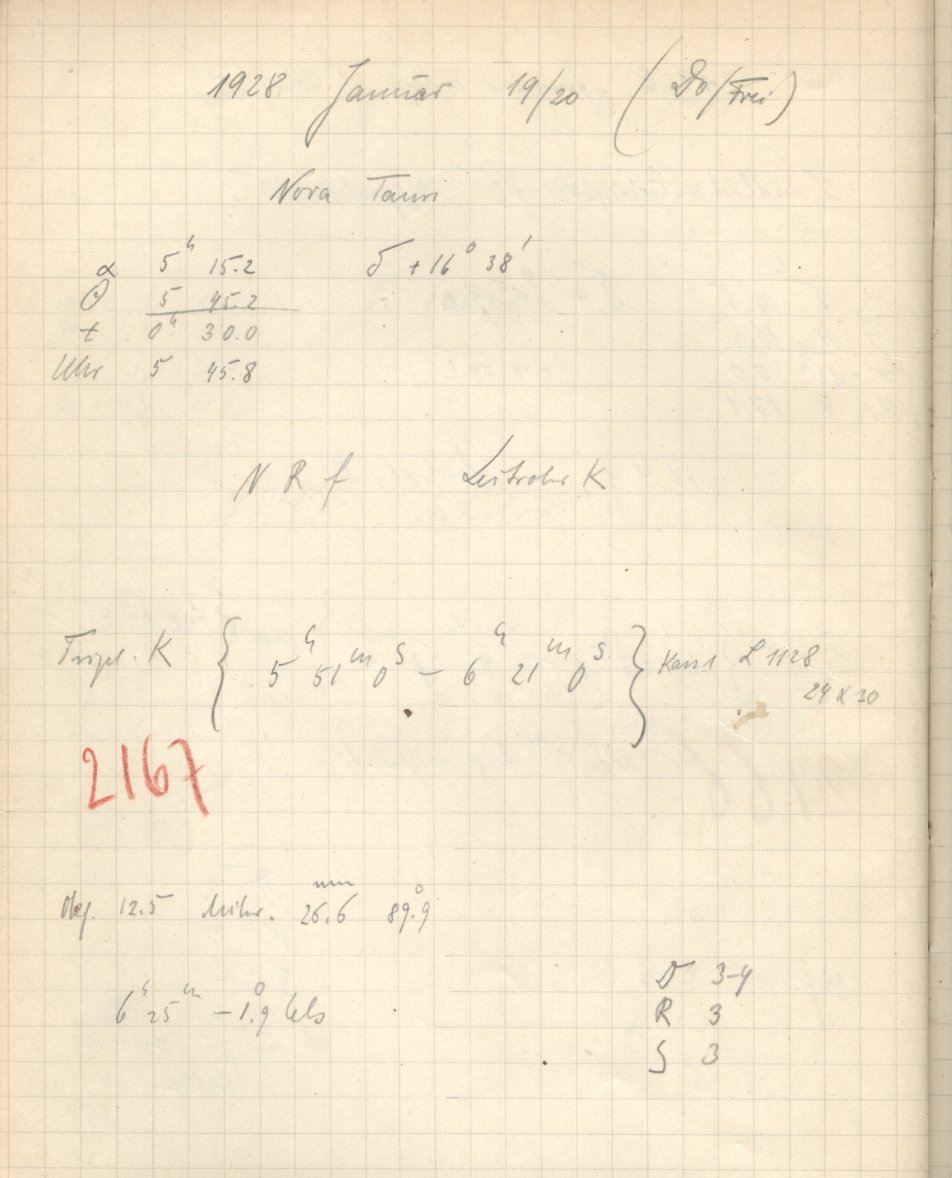 1928 Januar 19/20 (Do/Frei)
Nova Tauri
α 5ʰ 15.2 δ +16° 38'
Θ 5 45.2
t 0ʰ 30.0
Uhr 5 45.8
N R f Leitrohr K
Tripl. K { 5ʰ 51ᵐ 0ˢ – 6ʰ 21ᵐ 0ˢ } Kass1 L 1128
24 x 30
2167
Obj. 12.5 Mikr. 26.6 mm 89.9°
6ʰ 25ᵐ –1.9° Cels
D 3-4
R 3
S 3